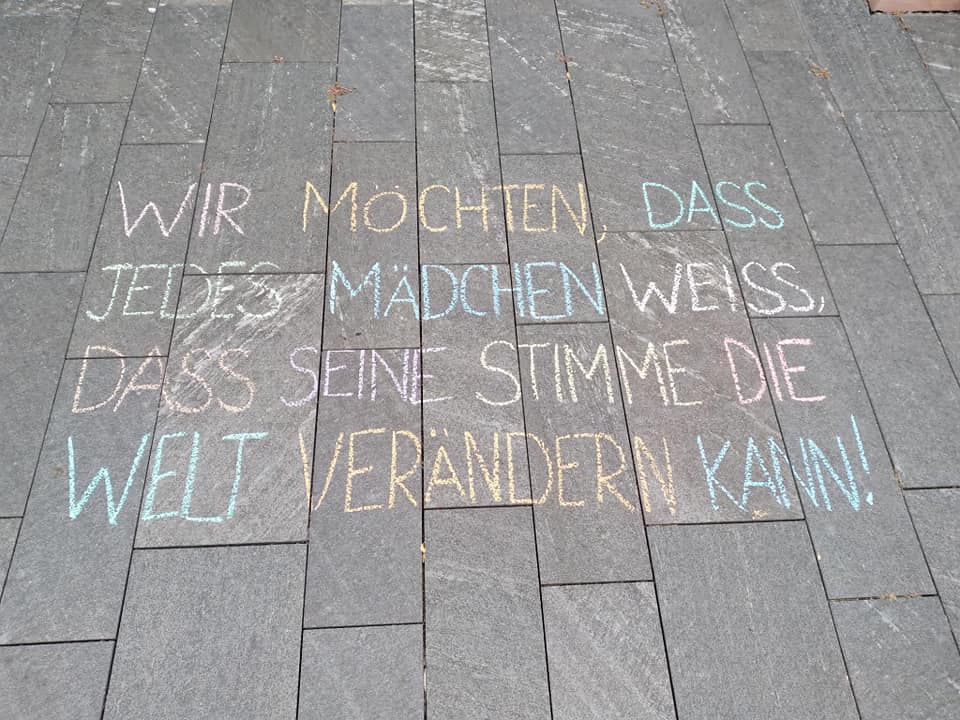 WIR MÖCHTEN, DASS
JEDES MÄDCHEN WEISS,
DASS SEINE STIMME DIE
WELT VERÄNDERN KANN!